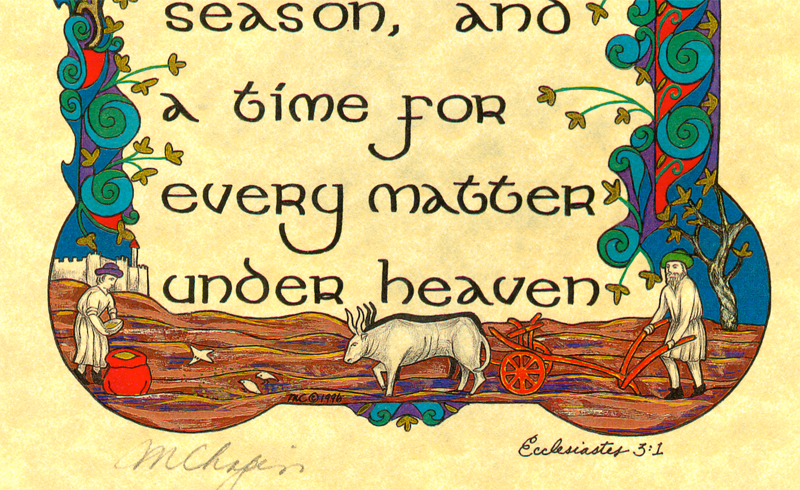 season, and
a time for
every matter
under heaven
MC©1996
Ecclesiastes 3:1
MChapin